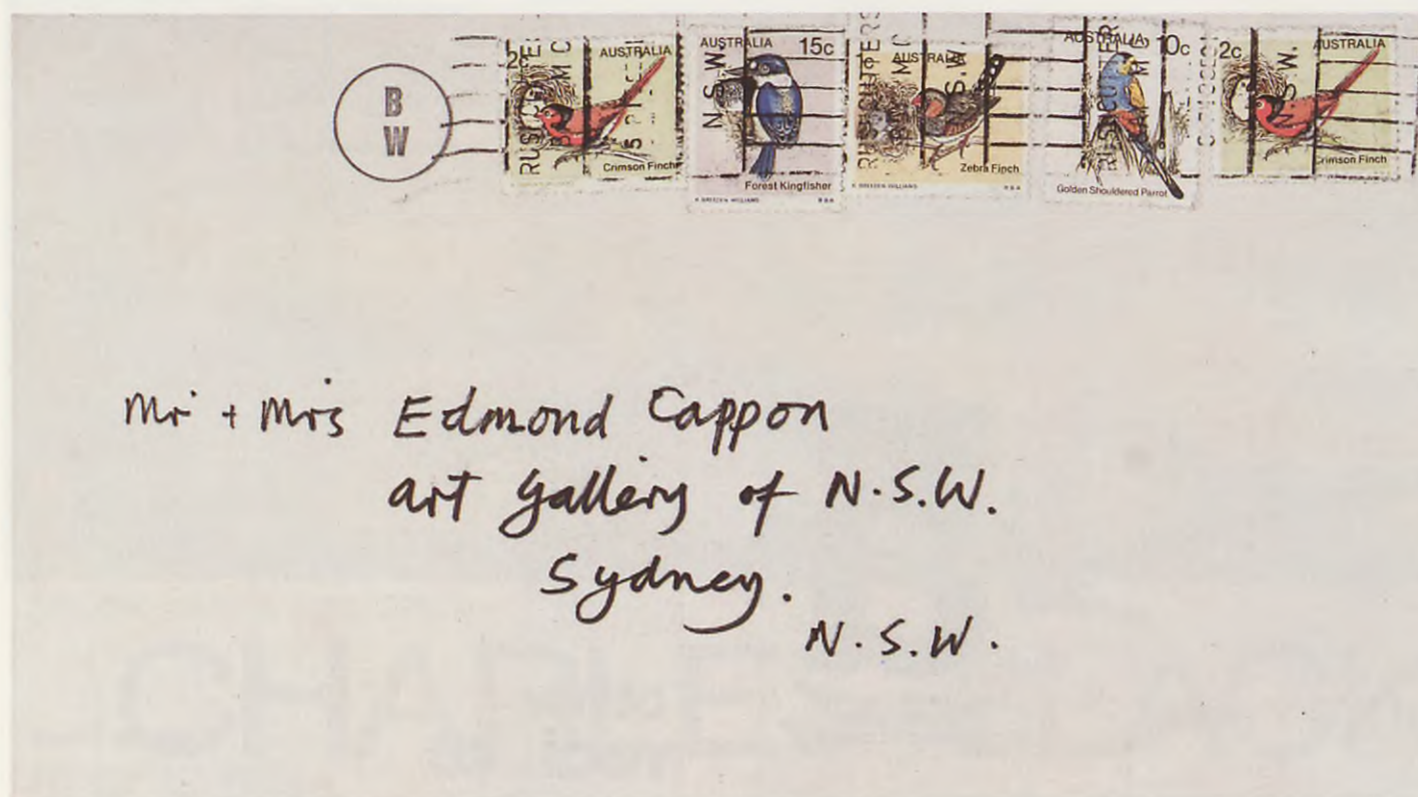 B
W
2c AUSTRALIA
Crimson Finch
AUSTRALIA 15c
N.S.W.
Forest Kingfisher
AUSTRALIA
Zebra Finch
AUSTRALIA 10c
Golden Shouldered Parrot
2c AUSTRALIA
N.S.W.
Crimson Finch
Mr + Mrs Edmond Cappon
art Gallery of N.S.W.
Sydney.
N.S.W.